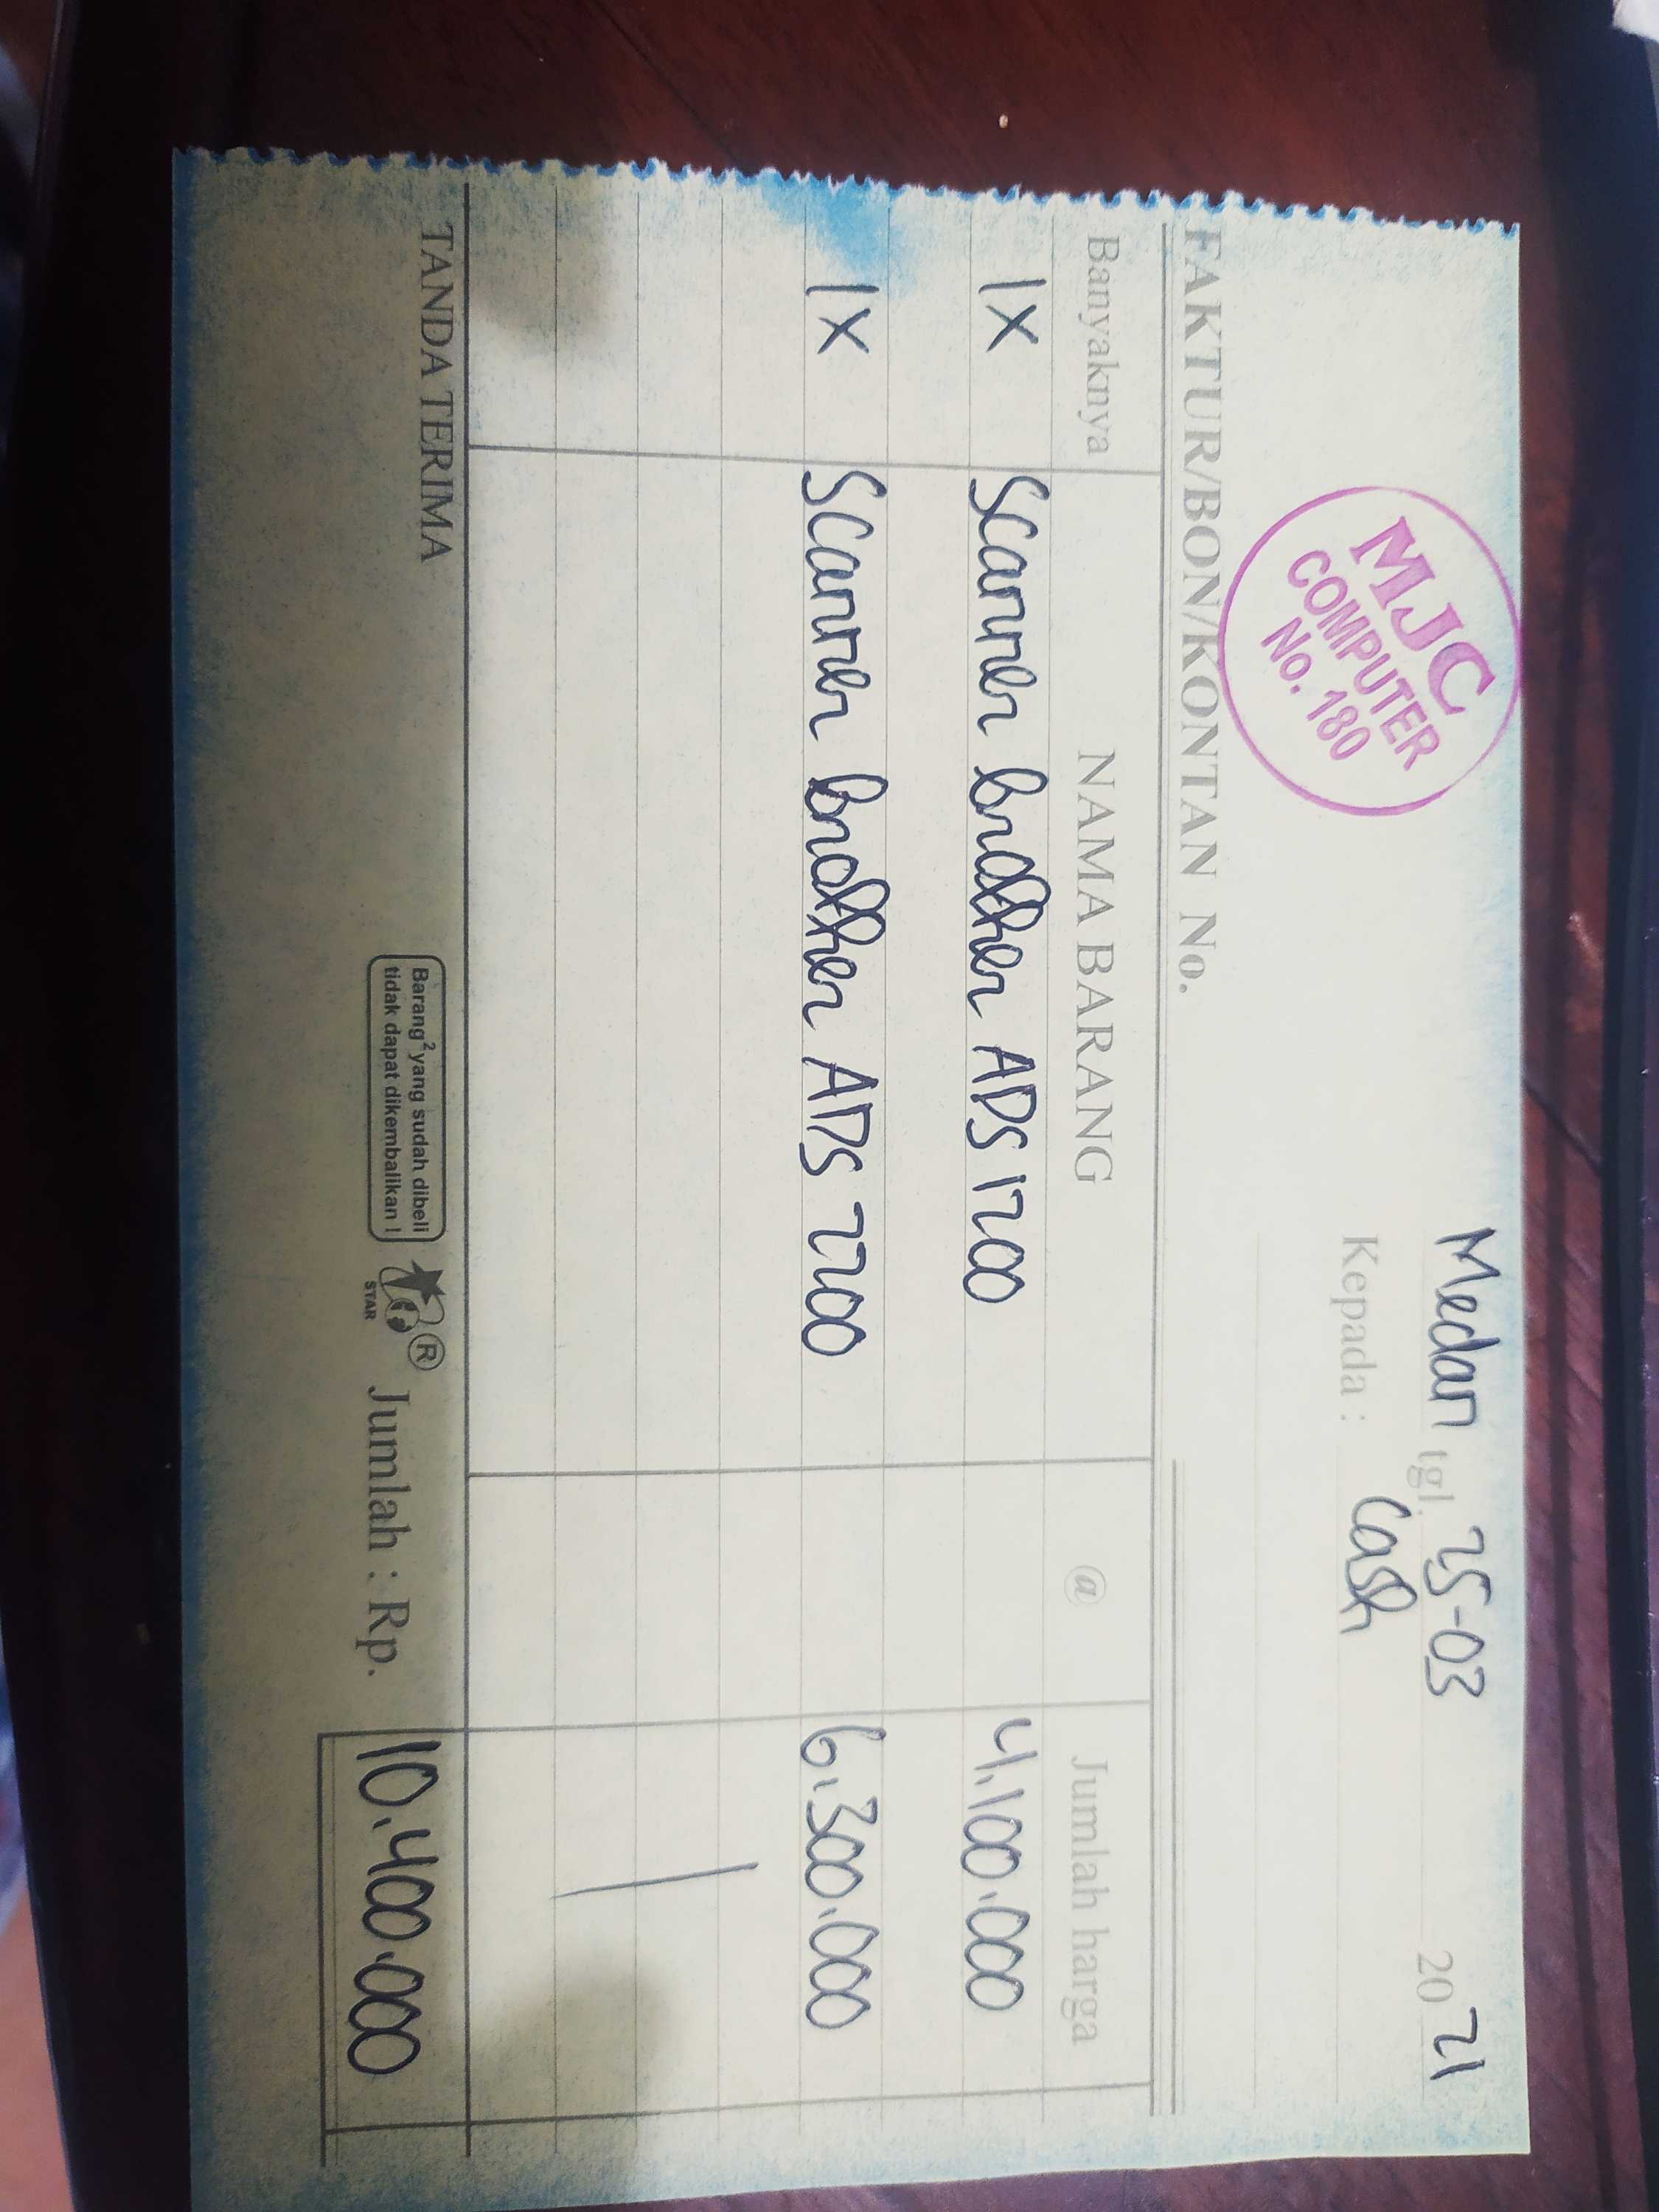 MJC
COMPUTER
No. 180
Medan tgl. 25-03 2021
Kepada : Cash
FAKTUR/BON/KONTAN No.
Banyaknya NAMA BARANG @ Jumlah harga
1X Scanner brother ADS 1200 4.100.000
1X Scanner brother ADS 2200 6.300.000
TANDA TERIMA
Barang² yang sudah dibeli
tidak dapat dikembalikan !
STAR
®
Jumlah : Rp. 10.400.000